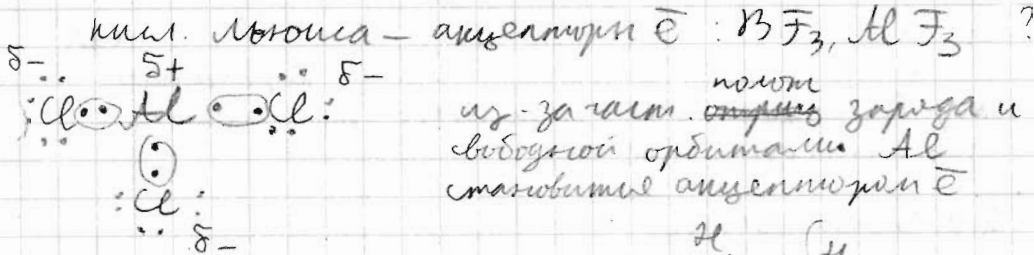 кисл. Льюиса – акцепторы ē : BF₃, AlF₃ ?
δ- δ+ δ-
:Cl : Al : Cl:
из-за част. полож заряда и
свободной орбитали Al
становится акцептором ē
:Cl:
δ-
H H